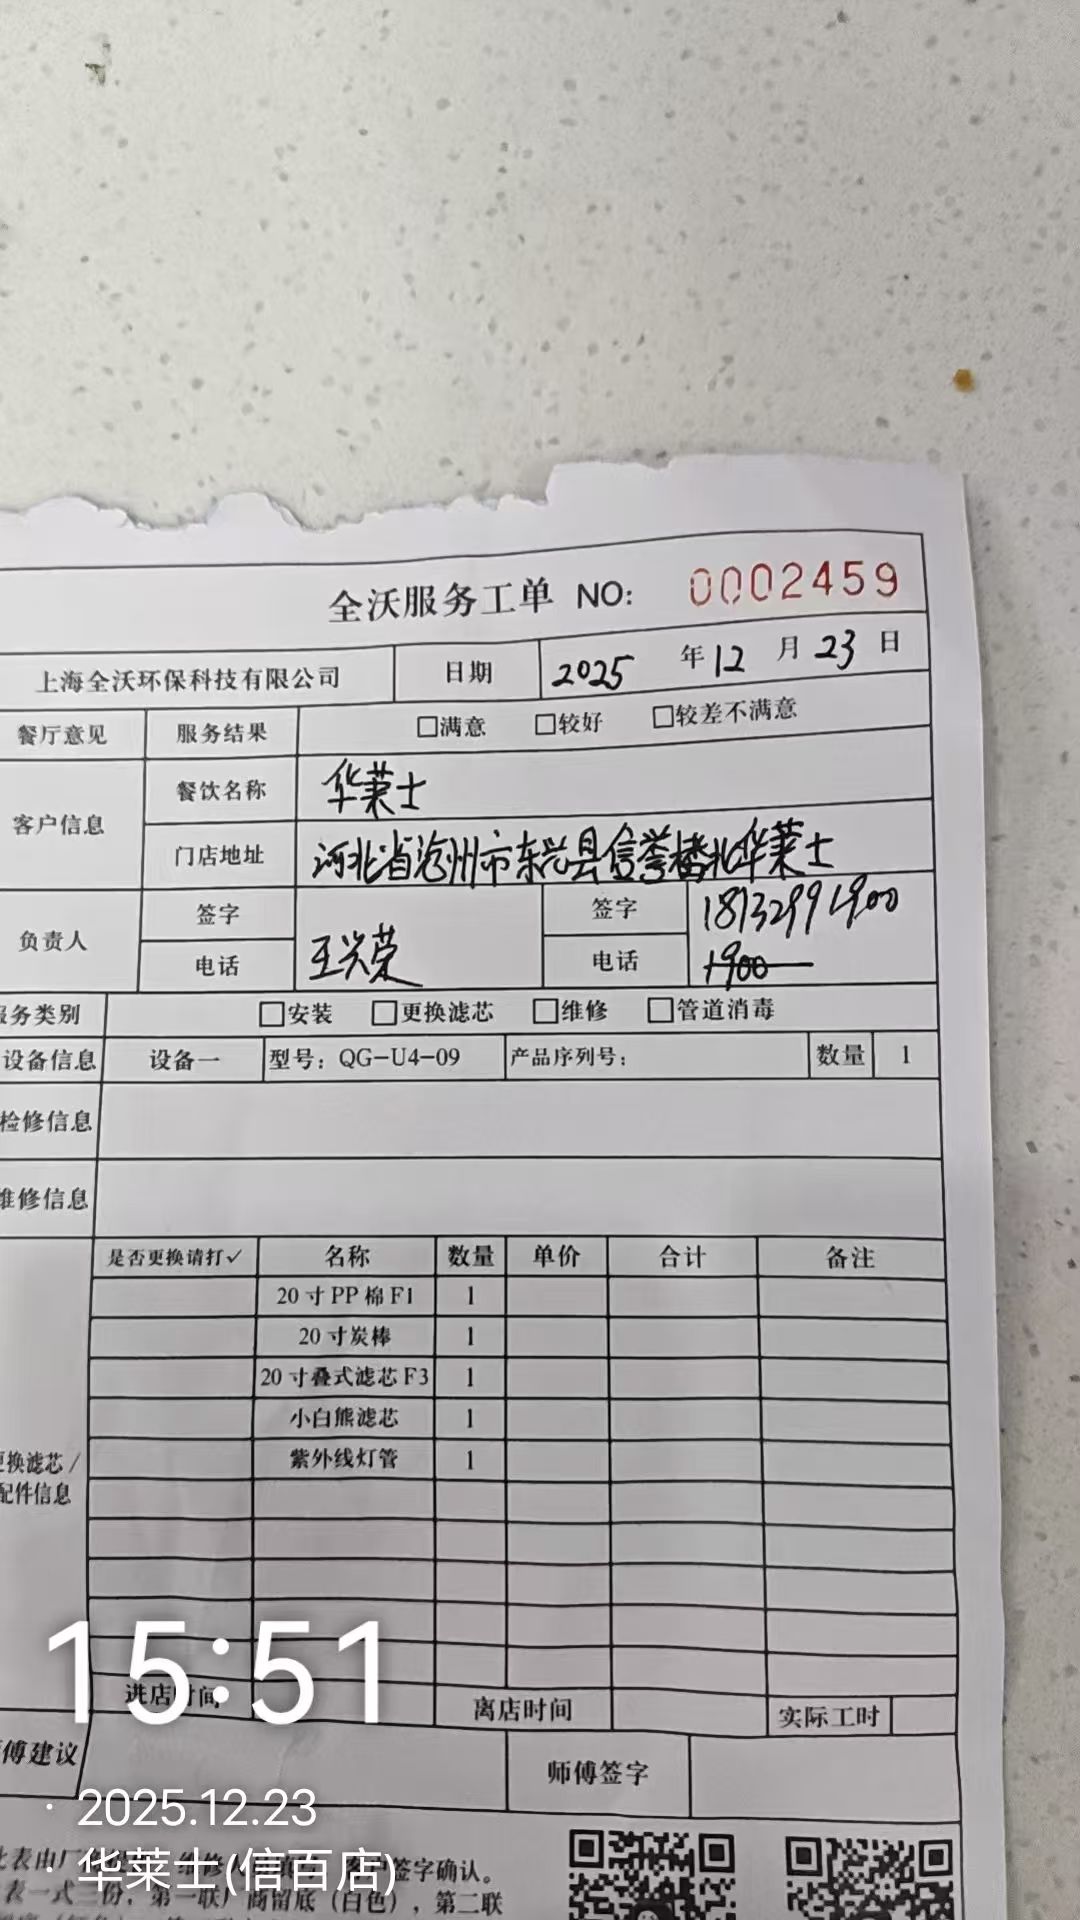 全沃服务工单 NO: 0002459
上海全沃环保科技有限公司 日期 2025 年 12 月 23 日
餐厅意见 服务结果 □满意 □较好 □较差不满意
客户信息 餐饮名称 华莱士
门店地址 河北省沧州市东光县信誉楼北华莱士
负责人 签字 王兴荣 签字 18132991900
电话 电话 1900
服务类别 □安装 □更换滤芯 □维修 □管道消毒
设备信息 设备一 型号：QG-U4-09 产品序列号： 数量 1
检修信息
维修信息
是否更换请打✓ 名称 数量 单价 合计 备注
20寸PP棉F1 1
20寸炭棒 1
20寸叠式滤芯F3 1
小白熊滤芯 1
紫外线灯管 1
更换滤芯/
配件信息
进店时间 离店时间 实际工时
师傅建议 师傅签字
15:51
2025.12.23
华莱士(信百店)
此表由厂 签字确认。
表一式三份，第一联厂商留底（白色），第二联